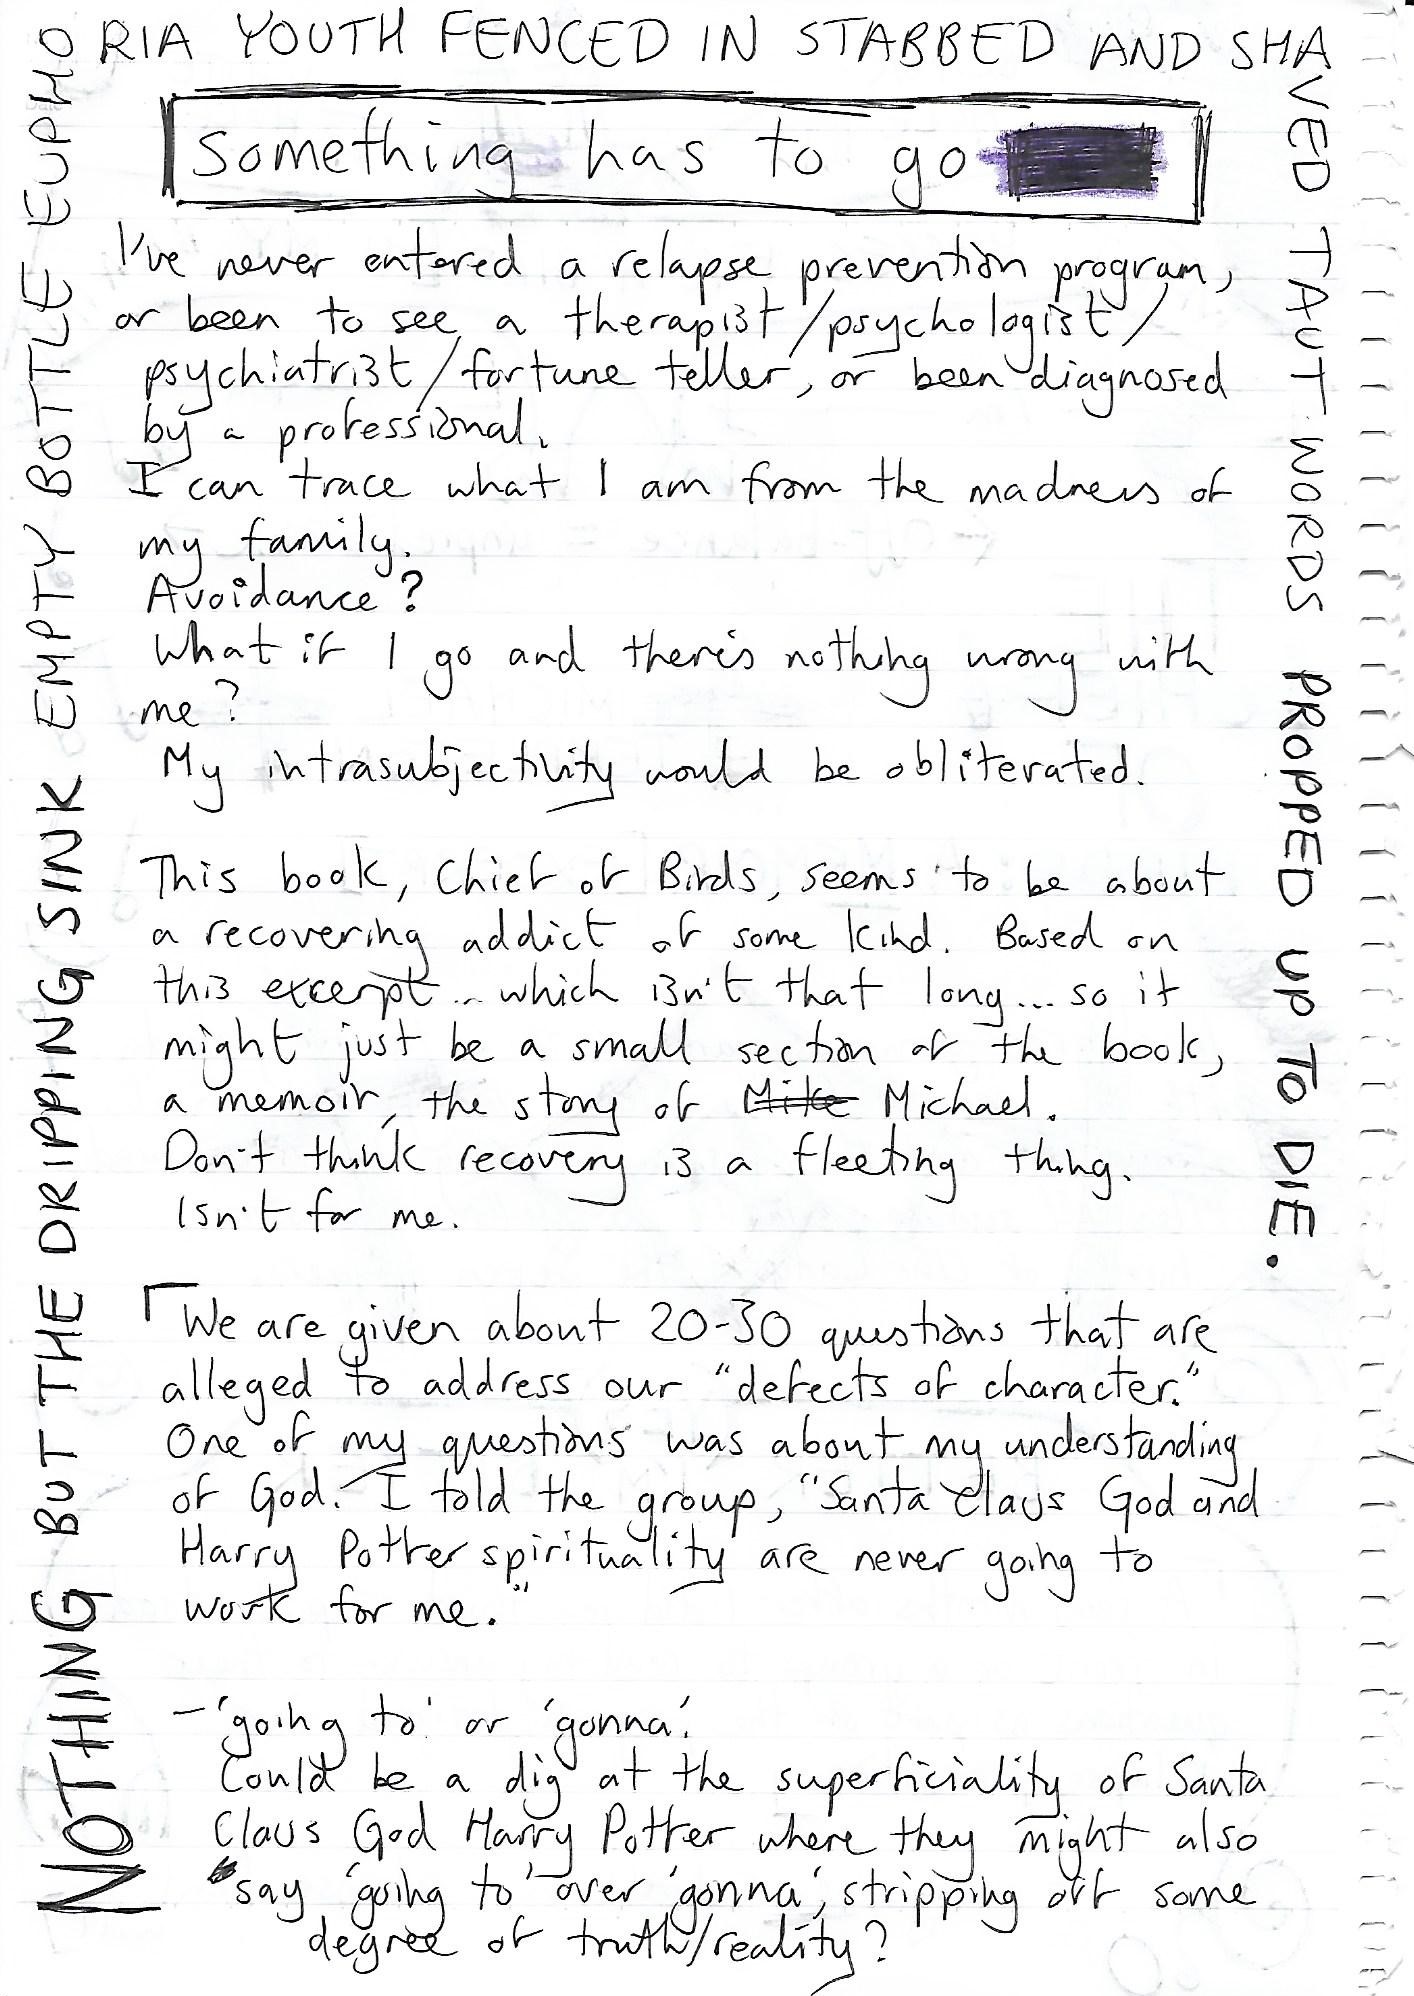 NOTHING BUT THE DRIPPING SINK EMPTY BOTTLE EUPHO
RIA YOUTH FENCED IN STABBED AND SHA
VED TAUT WORDS PROPPED UP TO DIE.
Something has to go
I've never entered a relapse prevention program,
or been to see a therapist/psychologist/
psychiatrist/fortune teller, or been diagnosed
by a professional.
I can trace what I am from the madness of
my family.
Avoidance?
What if I go and there's nothing wrong with
me?
My intrasubjectivity would be obliterated.
This book, Chief of Birds, seems to be about
a recovering addict of some kind. Based on
this excerpt... which isn't that long... so it
might just be a small section of the book,
a memoir, the story of Mike Michael.
Don't think recovery is a fleeting thing.
Isn't for me.
「We are given about 20-30 questions that are
alleged to address our "defects of character."
One of my questions was about my understanding
of God. I told the group, "Santa Claus God and
Harry Potter spirituality are never going to
work for me."
- 'going to' or 'gonna'.
Could be a dig at the superficiality of Santa
Claus God Harry Potter where they might also
say 'going to' over 'gonna', stripping off some
degree of truth/reality?